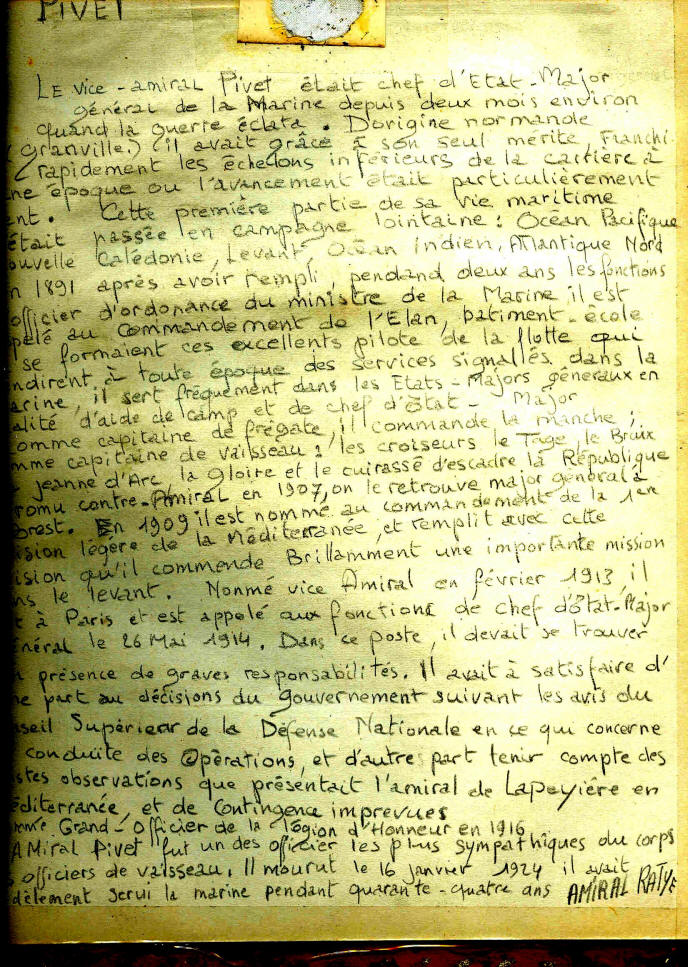 PIVET
LE vice-amiral Pivet était chef d'Etat-Major
général de la Marine depuis deux mois environ
quand la guerre éclata. Dorigine normande
(Granville.) il avait grâce à son seul mérite, Franchi
rapidement les échelons inférieurs de la carrière à
ne époque ou l'avancement était particulièrement
ent. Cette première partie de sa vie maritime
était passée en campagne lointaine: Océan Pacifique
ouvelle Calédonie, Levant, Océan Indien, Atlantique Nord
n 1891 après avoir rempli, pendand deux ans les fonctions
officier d'ordonance du ministre de la Marine il est
pelé au commandement de l'Elan, batiment-école
se formaient ces excellents pilote de la flotte qui
ndirent à toute époque des services signallés dans la
arine, il sert fréquement dans les Etats-Majors généraux en
alité d'aide de camp et de chef d'état-Major
omme capitaine de frégate, il commande la manche;
mme capitaine de vaisseau: les croiseurs le Tage, le Bruix
Jeanne d'Arc, la Gloire et le cuirassé d'escadre la République
romu contre-Amiral en 1907, on le retrouve major général à
Brest. En 1909 il est nommé au commandement de la 1ere
ision légère de la Méditerranée, et remplit avec cette
ision qu'il commende Brillamment une importante mission
ns le levant. Nonmé vice Amiral en février 1913, il
t à Paris et est appelé aux fonctions de chef d'état-Major
énéral le 26 Mai 1914. Dans ce poste, il devait se trouver
n présence de graves responsabilités. Il avait à satisfaire d'
ne part au décisions du gouvernement suivant les avis du
nseil Supérieur de la Défense Nationale en ce qui concerne
conduite des Opérations, et d'autre part tenir compte des
stes observations que présentait l'amiral de Lapeyière en
éditerranée, et de Contingence imprevues
mmé Grand-Officier de la légion d'Honneur en 1916
AMiral Pivet fut un des officier les plus sympathiques du corps
s officiers de vaisseau. Il mourut le 16 janvier 1924 il avait
dèlement servi la marine pendant quarante-quatre ans AMIRAL RATYE